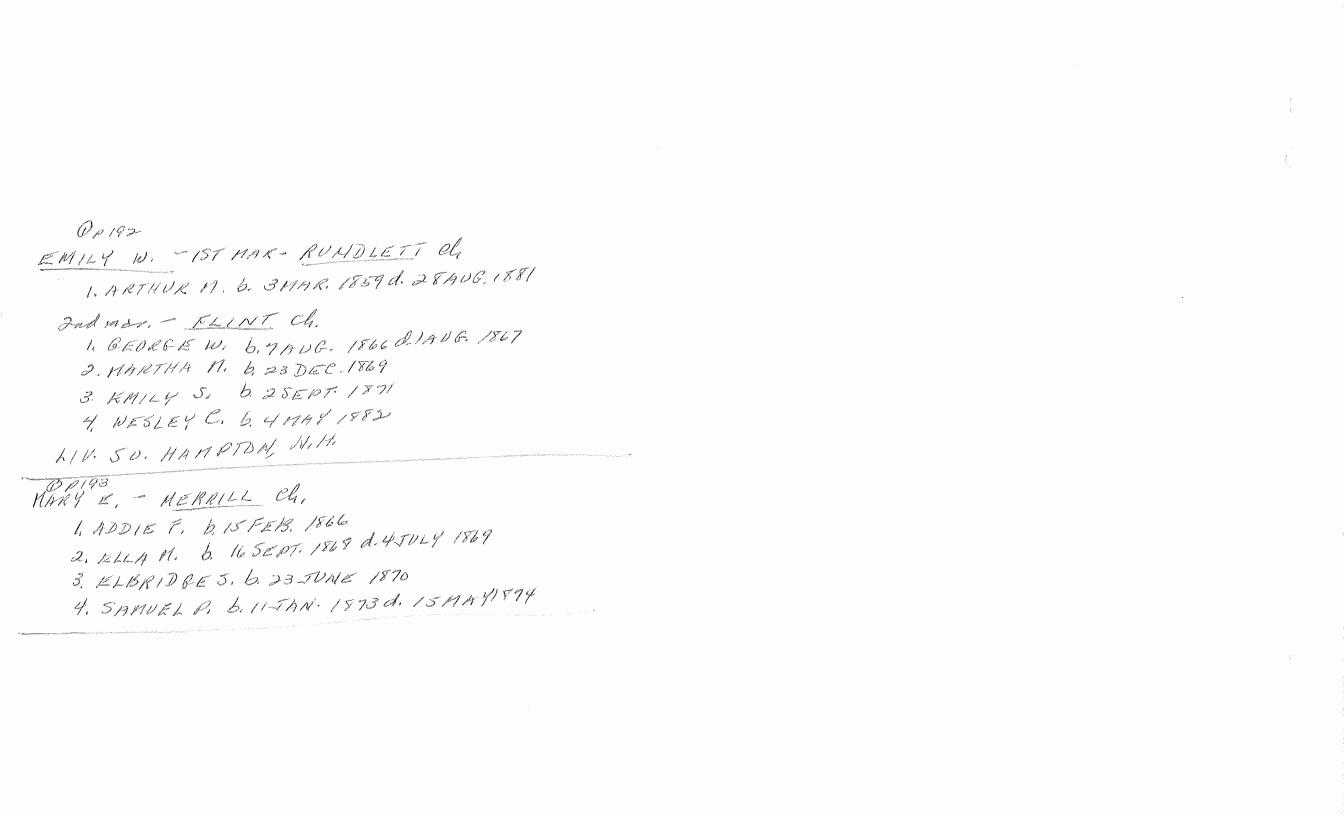 @ P 192
EMILY W. - 1ST MAR- RUNDLETT Ch,
1. ARTHUR M. b. 3 MAR. 1859 d. 28 AUG. 1881
2nd mar. - FLINT Ch.
1. GEORGE W. b. 7 AUG. 1866 d. 1 AUG. 1867
2. MARTHA M. b. 23 DEC. 1869
3. EMILY S. b. 2 SEPT. 1871
4. WESLEY C. b. 4 MAY 1882
LIV. SO. HAMPTON, N.H.
@ P 193
MARY E, - MERRILL Ch,
1. ADDIE F. b. 15 FEB. 1866
2. ELLA M. b. 16 SEPT. 1868 d. 4 JULY 1869
3. ELBRIDGE S. b. 23 JUNE 1870
4. SAMUEL P. b. 11 JAN. 1873 d. 15 MAY 1874